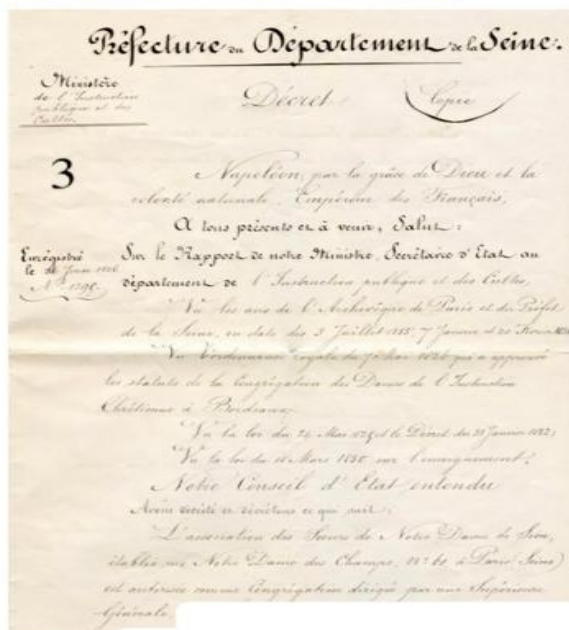 Préfecture du Département de la Seine.
Ministère
de l'Instruction
publique et des
Cultes
Décret
Copie
3
Napoléon, par la grâce de Dieu et la
volonté nationale, Empereur des Français,
A tous présents et à venir, Salut:
Enregistré
le Juin
Sur le Rapport de notre Ministre, Secrétaire d'Etat au
département de l'Instruction publique et des Cultes,
Vu les avis de l'Archevêque de Paris et du Préfet
de la Seine, en date des 3 Juillet 1855, 7 Janvier et 20
Vu l'ordonnance royale du 7 Mai 1826 qui a approuvé
les statuts de la Congrégation des Dames de l'Instruction
Chrétienne à Bordeaux,
Vu la loi du 24 Mai et le Décret du 31 Janvier 1852;
Vu la loi du 15 Mars 1850 sur l'enseignement;
Notre Conseil d'Etat entendu
Avons décrété et décrétons ce qui suit:
L'association des Sœurs de Notre Dame de Sion,
établie rue Notre Dame des Champs, n° 61 à Paris (Seine)
est autorisée comme Congrégation dirigée par une Supérieure
Générale.